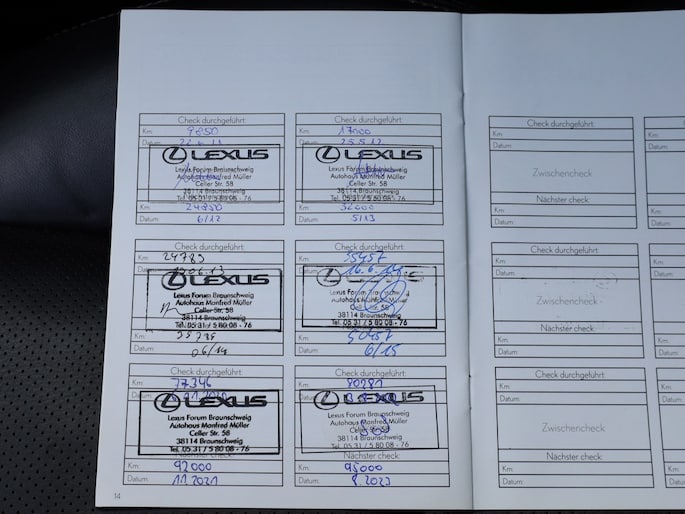 Check durchgeführt:
Km: 9850
Datum:
LEXUS
Lexus Forum Braunschweig
Autohaus Manfred Müller
Celler Str. 58
38114 Braunschweig
Tel. 05 31 / 5 80 08 - 76
Km: 24850
Datum: 6/12
Check durchgeführt:
Km: 17000
Datum: 25.5.12
LEXUS
Lexus Forum Braunschweig
Autohaus Manfred Müller
Celler Str. 58
38114 Braunschweig
Tel. 05 31 / 5 80 08 - 76
Km: 32000
Datum: 5/13
Check durchgeführt:
Km: 24783
Datum:
LEXUS
Lexus Forum Braunschweig
Autohaus Manfred Müller
Celler Str. 58
38114 Braunschweig
Tel. 05 31 / 5 80 08 - 76
Km:
Datum: 06/14
Check durchgeführt:
Km: 35457
Datum: 16.6.14
Lexus Forum Braunschweig
Autohaus Manfred Müller
Celler Str. 58
38114 Braunschweig
Tel. 05 31 / 5 80 08 - 76
Km: 50457
Datum: 6/15
Check durchgeführt:
Km: 77346
Datum:
LEXUS
Lexus Forum Braunschweig
Autohaus Manfred Müller
Celler Str. 58
38114 Braunschweig
Tel. 05 31 / 5 80 08 - 76
Nächster check:
Km: 92000
Datum: 11.2021
Check durchgeführt:
Km: 80281
Datum:
LEXUS
Lexus Forum Braunschweig
Autohaus Manfred Müller
Celler Str. 58
38114 Braunschweig
Tel. 05 31 / 5 80 08 - 76
Nächster check:
Km: 95000
Datum: 8.2023
14
Check durchgeführt:
Km:
Datum:
Zwischencheck
Nächster check:
Km:
Datum:
Check durchgeführt:
Km:
Datum:
Zwischencheck
Nächster check:
Km:
Datum:
Check durchgeführt:
Km:
Datum:
Zwischencheck
Nächster check:
Km:
Datum:
Km:
Datum:
Km:
Datum:
Km:
Datum:
Km:
Datum:
Km:
Datum:
Km:
Datum: